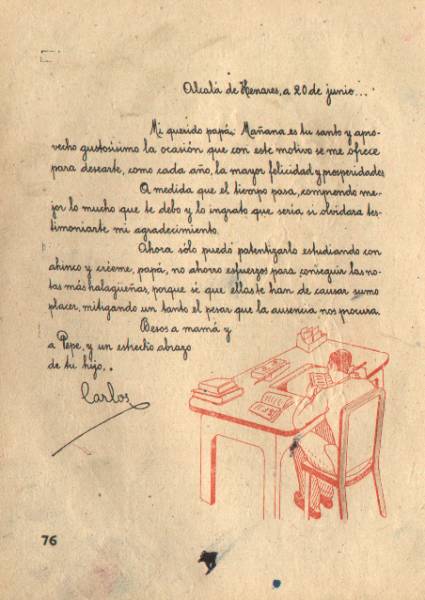 Alcalá de Henares, a 20 de junio...
Mi querido papá: Mañana es tu santo y apro-
vecho gustosísimo la ocasión que con este motivo se me ofrece
para desearte, como cada año, la mayor felicidad y prosperidades.
A medida que el tiempo pasa, comprendo me-
jor lo mucho que te debo y lo ingrato que sería si olvidara tes-
timoniarte mi agradecimiento.
Ahora sólo puedo patentizarlo estudiando con
ahinco y créeme, papá, no ahorro esfuerzos para conseguir las no-
tas más halagüeñas, porque sé que ellas te han de causar sumo
placer, mitigando un tanto el pesar que la ausencia nos procura.
Besos a mamá y
a Pepe, y un estrecho abrazo
de tu hijo,.
Carlos
76